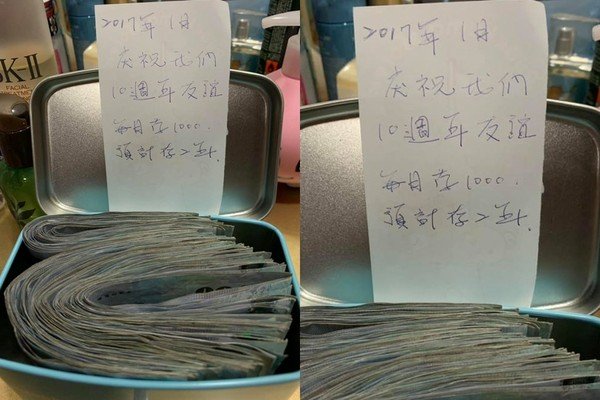 SK-II
FACIAL
2017年1月
庆祝我們
10週年友誼
每月存1000.
預計存2年.
2017年1月
庆祝我們
10週年友誼
每月存1000.
預計存2年.